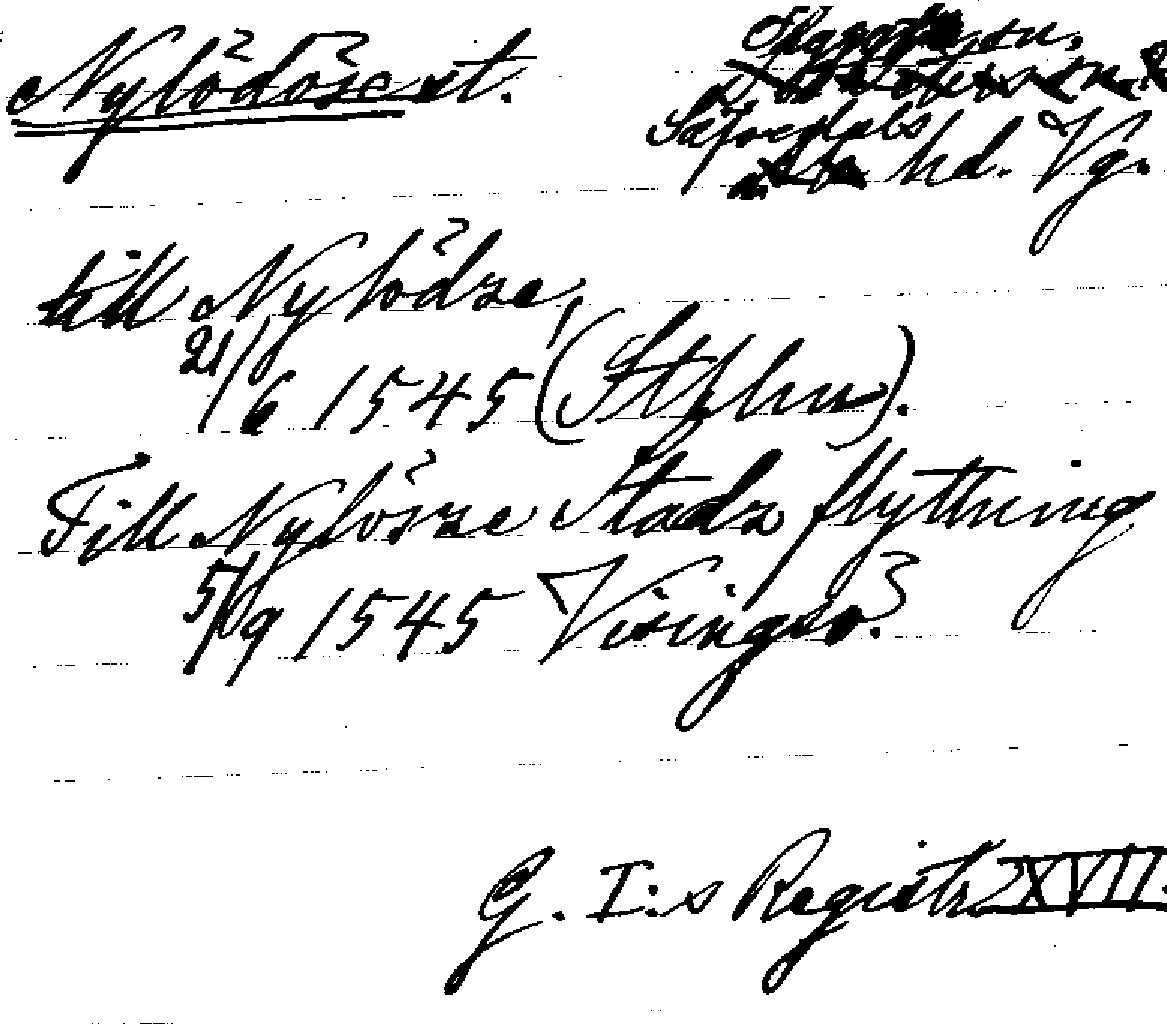 Nylödöse st.
sn.
Säfvedals
hd. Vg.
till Nylödze,
21/6 1545 (Sthlm).
Till Nylösze Stadz flyttning
5/9 1545 Visingsö.
G. I:s Registr. XVII.